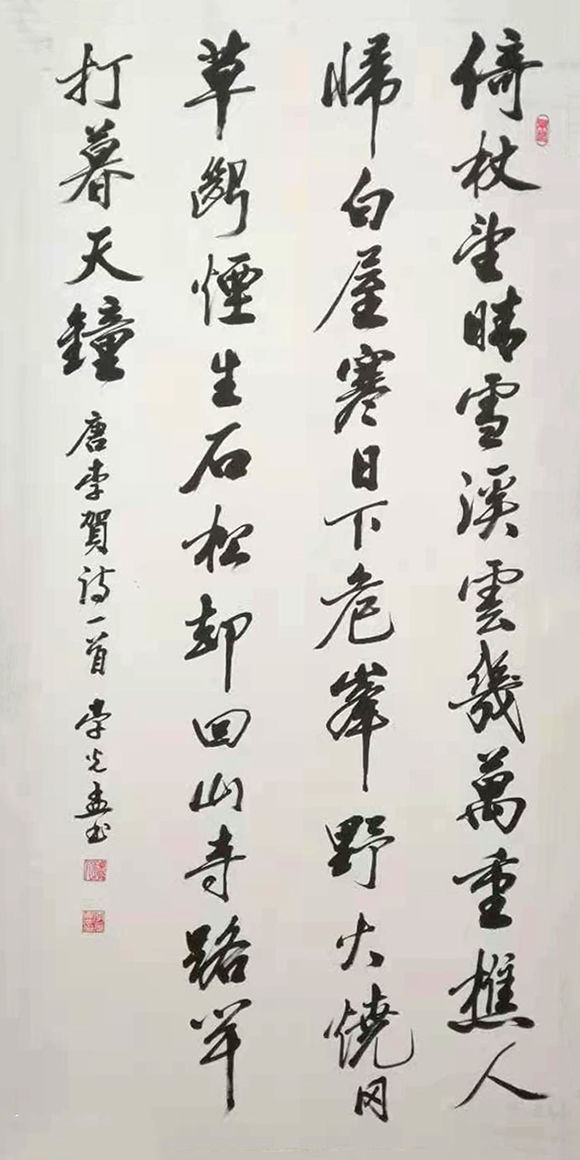 倚杖望晴雪溪雲幾萬重樵人
歸白屋寒日下危峯野火燒岡
草斷煙生石松却回山寺路聞
打暮天鐘
唐李賀詩一首 李光孟书